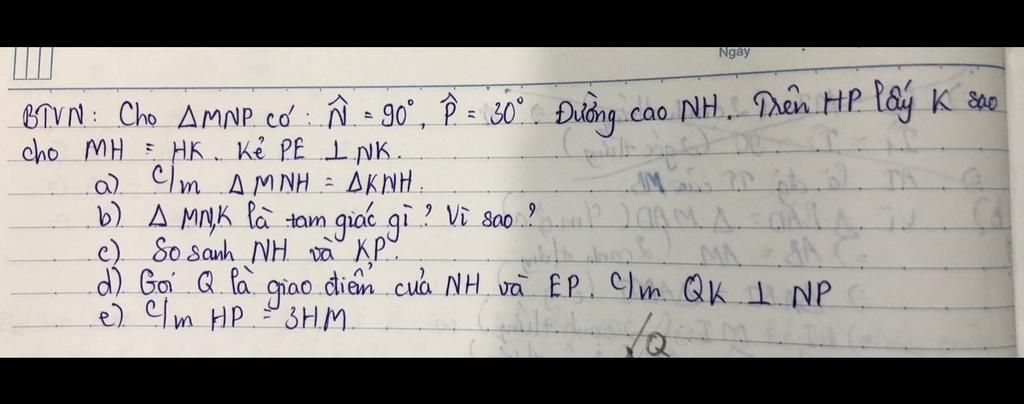 Ngày
BTVN: Cho ΔMNP có: N̂ = 90°, P̂ = 30°. Đường cao NH. Trên HP lấy K sao
cho MH = HK. Kẻ PE ⊥ NK.
a) C/m ΔMNH = ΔKNH.
b) Δ MNK là tam giác gì? Vì sao?
c) So sanh NH và KP.
d) Gọi Q là giao điểm của NH và EP. C/m QK ⊥ NP
e) C/m HP = 3HM.
Q